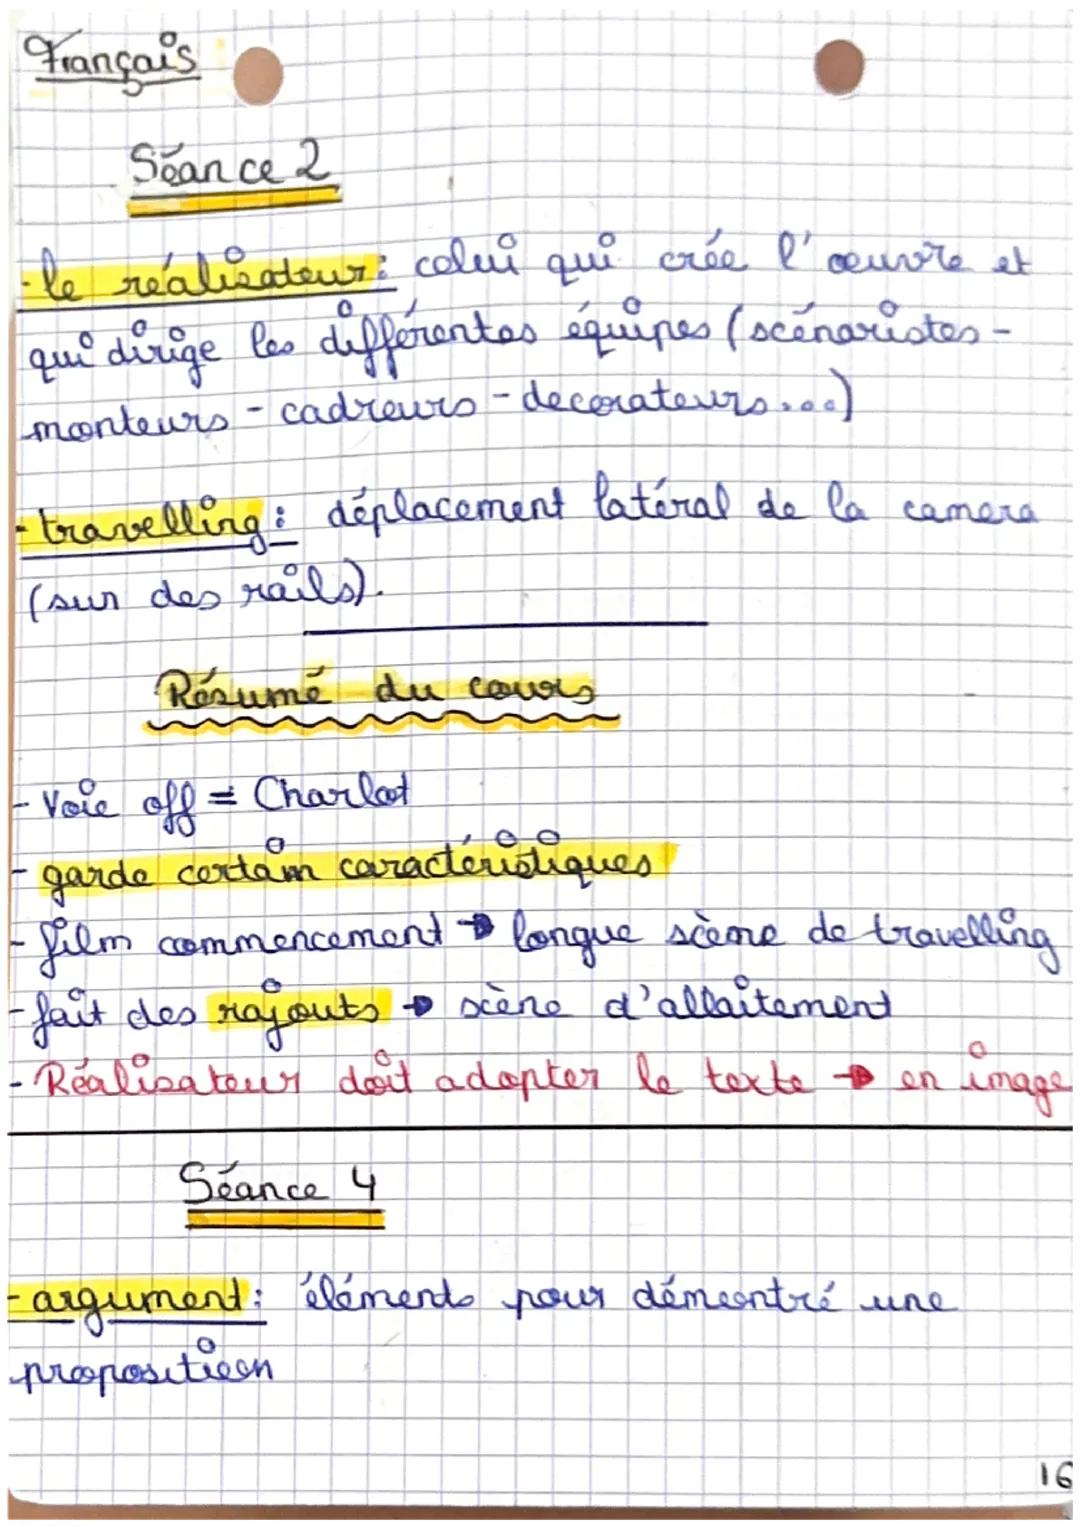 Français
Séance 2
- le réalisateur : celui qui crée l'œuvre et
qui dirige les différentes équipes (scénaristes -
monteurs - cadreurs - decorateurs...)
- travelling : déplacement latéral de la camera
(sur des rails).
Résumé du cours
- Voie off = Charlot
- garde certain caractéristiques
- film commencement → longue scène de travelling
- fait des rajouts → scène d'allaitement
- Réalisateur doit adapter le texte → en image
Séance 4
- argument : éléments pour démontré une
proposition
16